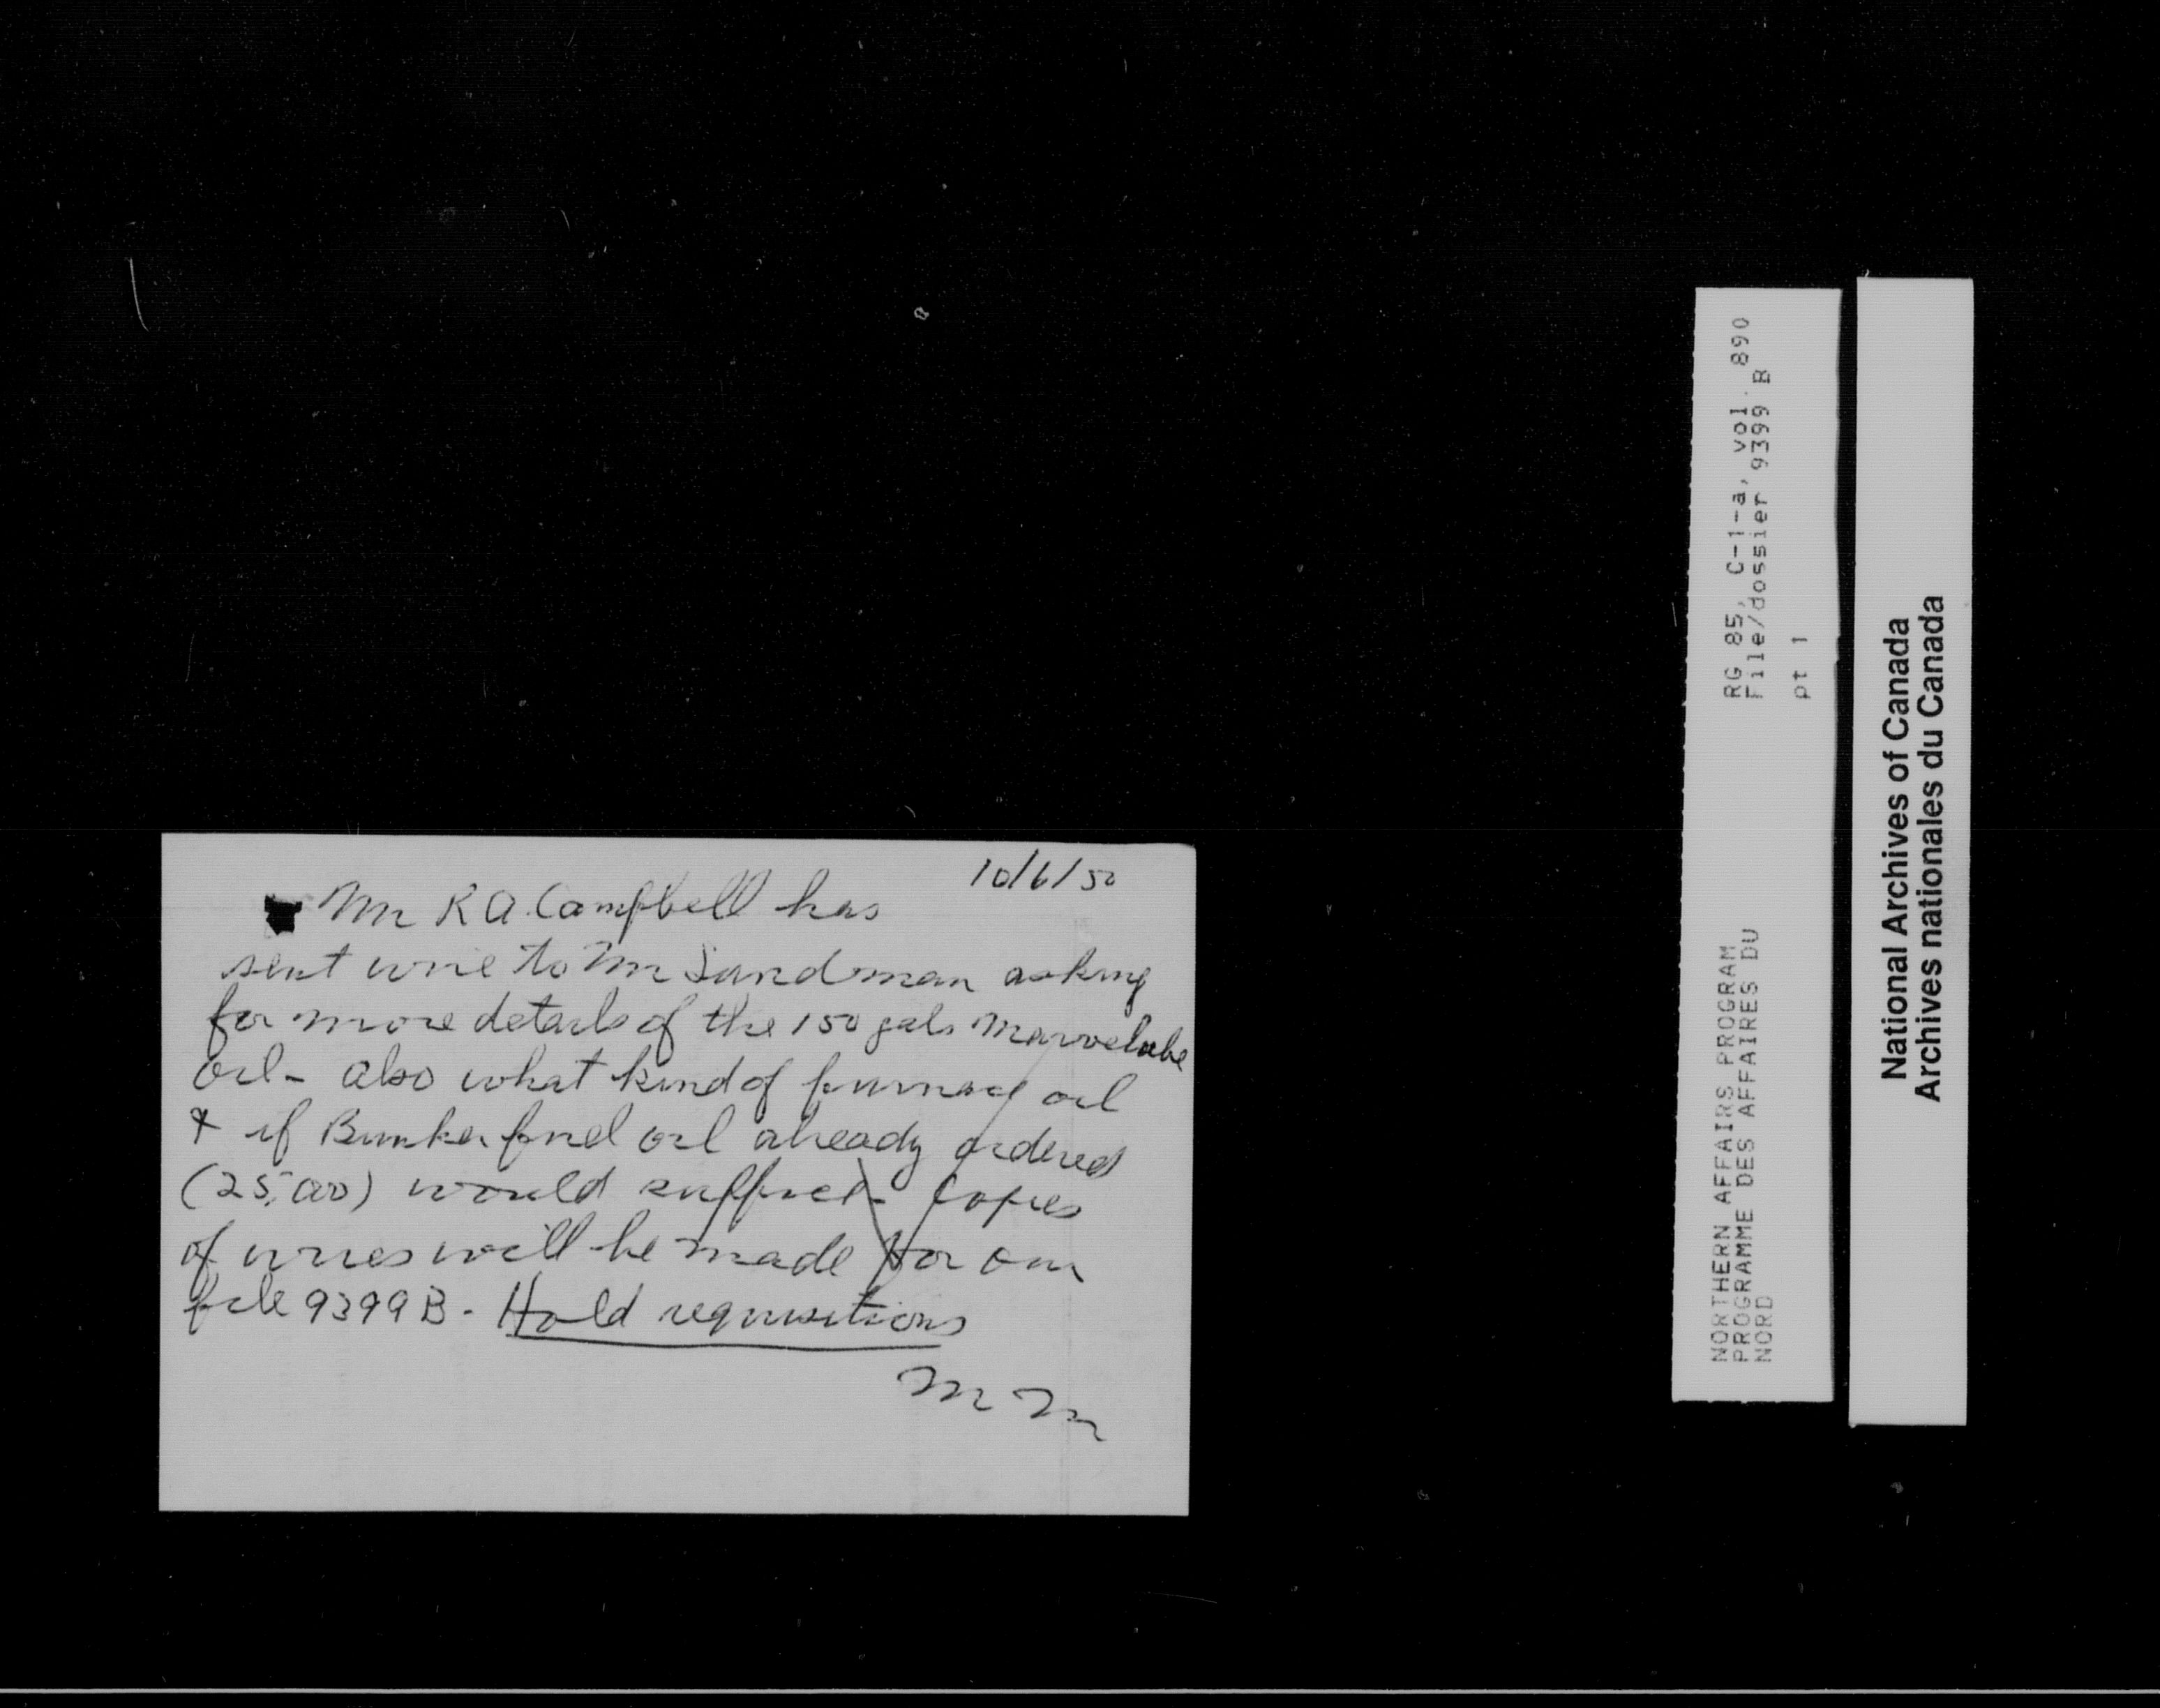 10/6/50
Mr R A. Campbell has
sent wire to Mr Sandman asking
for more details of the 150 gals Marvelube
oil - also what kind of furnace oil
& if Bunker fuel oil already ordered
(25,000) would suffice - Copies
of wires will be made for our
file 9399B - Hold requisitions
M M
RG 85, C-1-a, vol. 890
File/dossier 9399 B
pt 1
NORTHERN AFFAIRS PROGRAM
PROGRAMME DES AFFAIRES DU
NORD
National Archives of Canada
Archives nationales du Canada